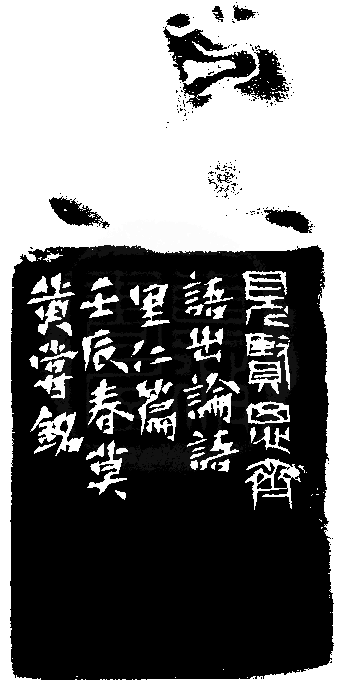 見賢思齊
語出論語
里仁篇
壬辰春莫
黃嘗銘